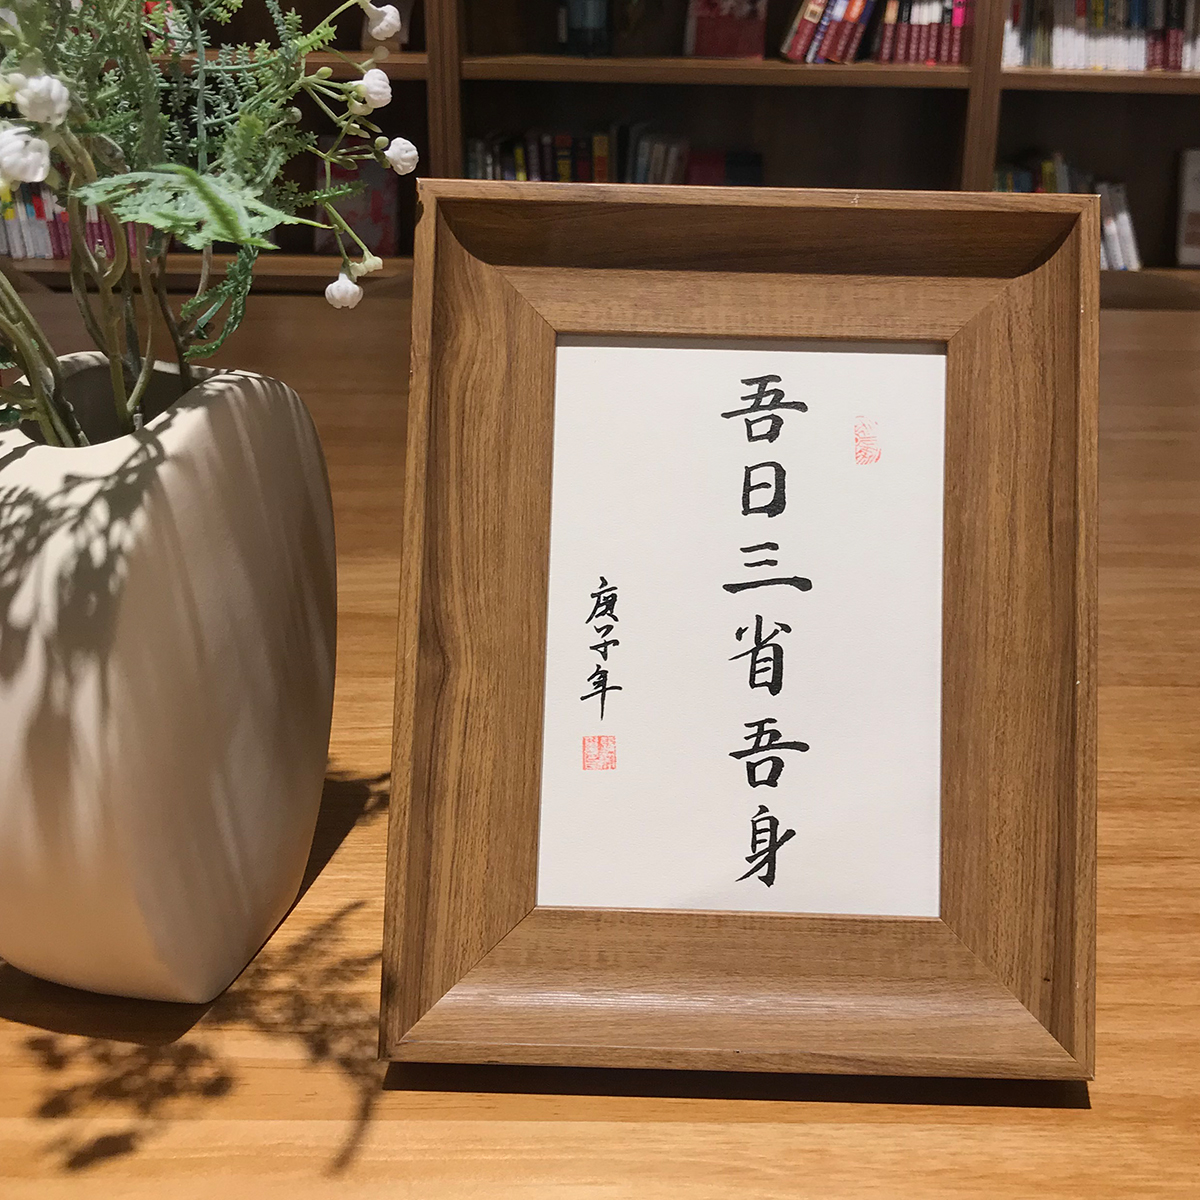 吾日三省吾身
庚子年